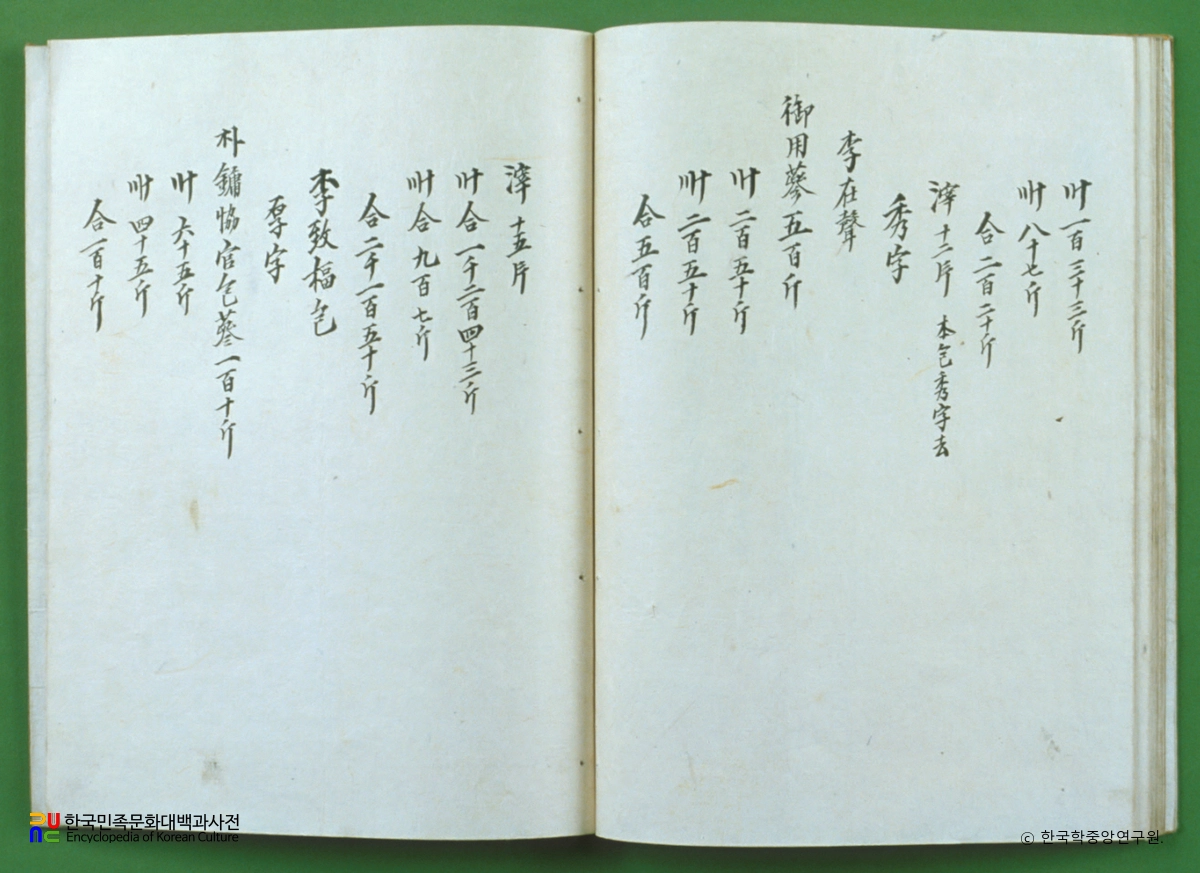 卅一百三十三斤
卅八十七斤
合二百二十斤
滓十二片 本包秀字去
秀字
李在聲
御用蔘五百斤
卅二百五十斤
卅二百五十斤
合五百斤
滓十五片
卅合一千二百四十三斤
卅合九百七斤
合二千一百五十斤
李致楅包
厚字
朴鏞恊官包蔘一百十斤
卅六十五斤
卅四十五斤
合一百十斤
한국민족문화대백과사전
Encyclopedia of Korean Culture
ⓒ 한국학중앙연구원.